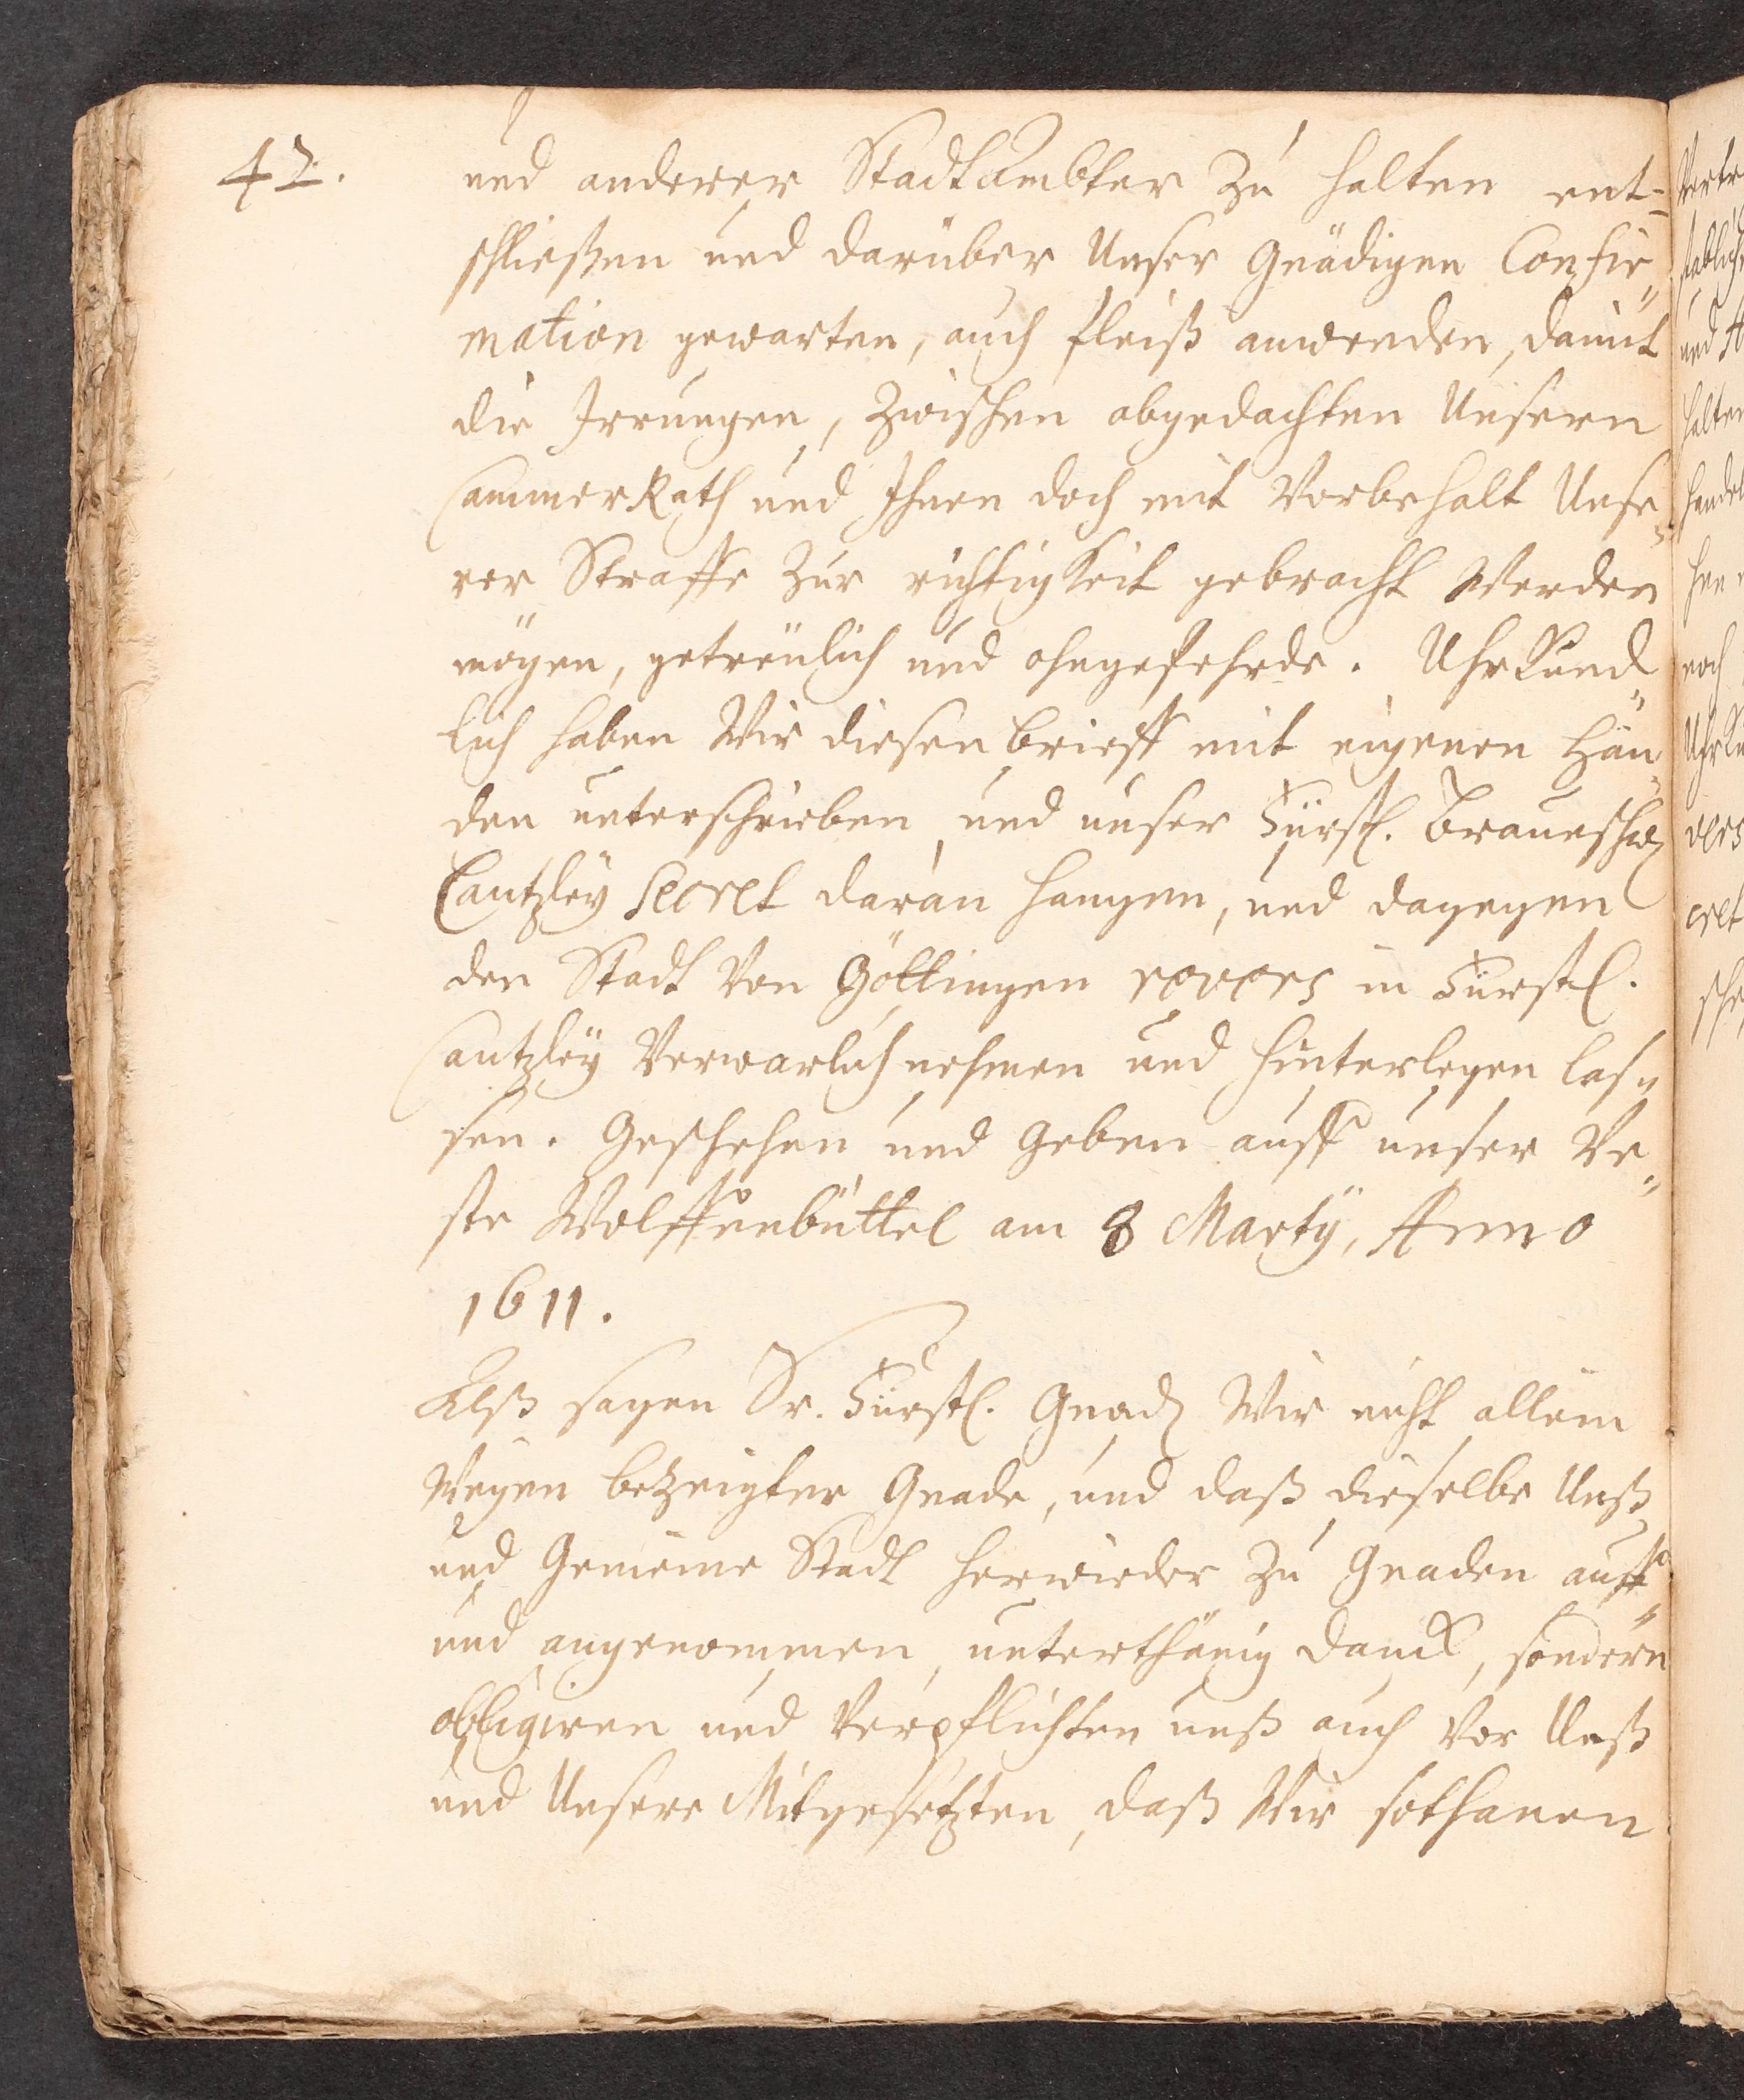 42.
und anderer Stadtämbter zu halten ent-
schließen und darüber Unser Gnädigen Confir„
mation gewarten, auch fleiß anwenden, damit
die Irrungen, zwischen abgedachten Unsern
CammerRath und Ihnen doch mit Vorbehalt Unse„
rer Straffe zur richtigkeit gebracht werden
mögen, getreülich und ohngefehrde. Uhrkund„
lich haben Wir diesen brieff mit eigenen Hän„
den unterschrieben, und unser Fürstl. Braunschw.
Cantzley Secret daran hangen, und dagegen
den Stadt von Göttingen revers in Fürstl.
Cantzleÿ verwarlich nehmen und hinterlegen las„
sen. Geschehen und Geben auff unser Ve„
ste Wolffenbüttel am 8 Martÿ, Anno
1611.
Alß sagen Sr. Fürstl. Gnad. Wir nicht allein
wegen bezeigter Gnade, und daß dieselbe Unß
und Gemeine Stadt herwieder zu Gnaden auff„
und angenommen, unterthänig danck, sondern
obligiren und verpflichten unß auch vor Unß
und Unsere Mitgesetzten, daß Wir sothanen